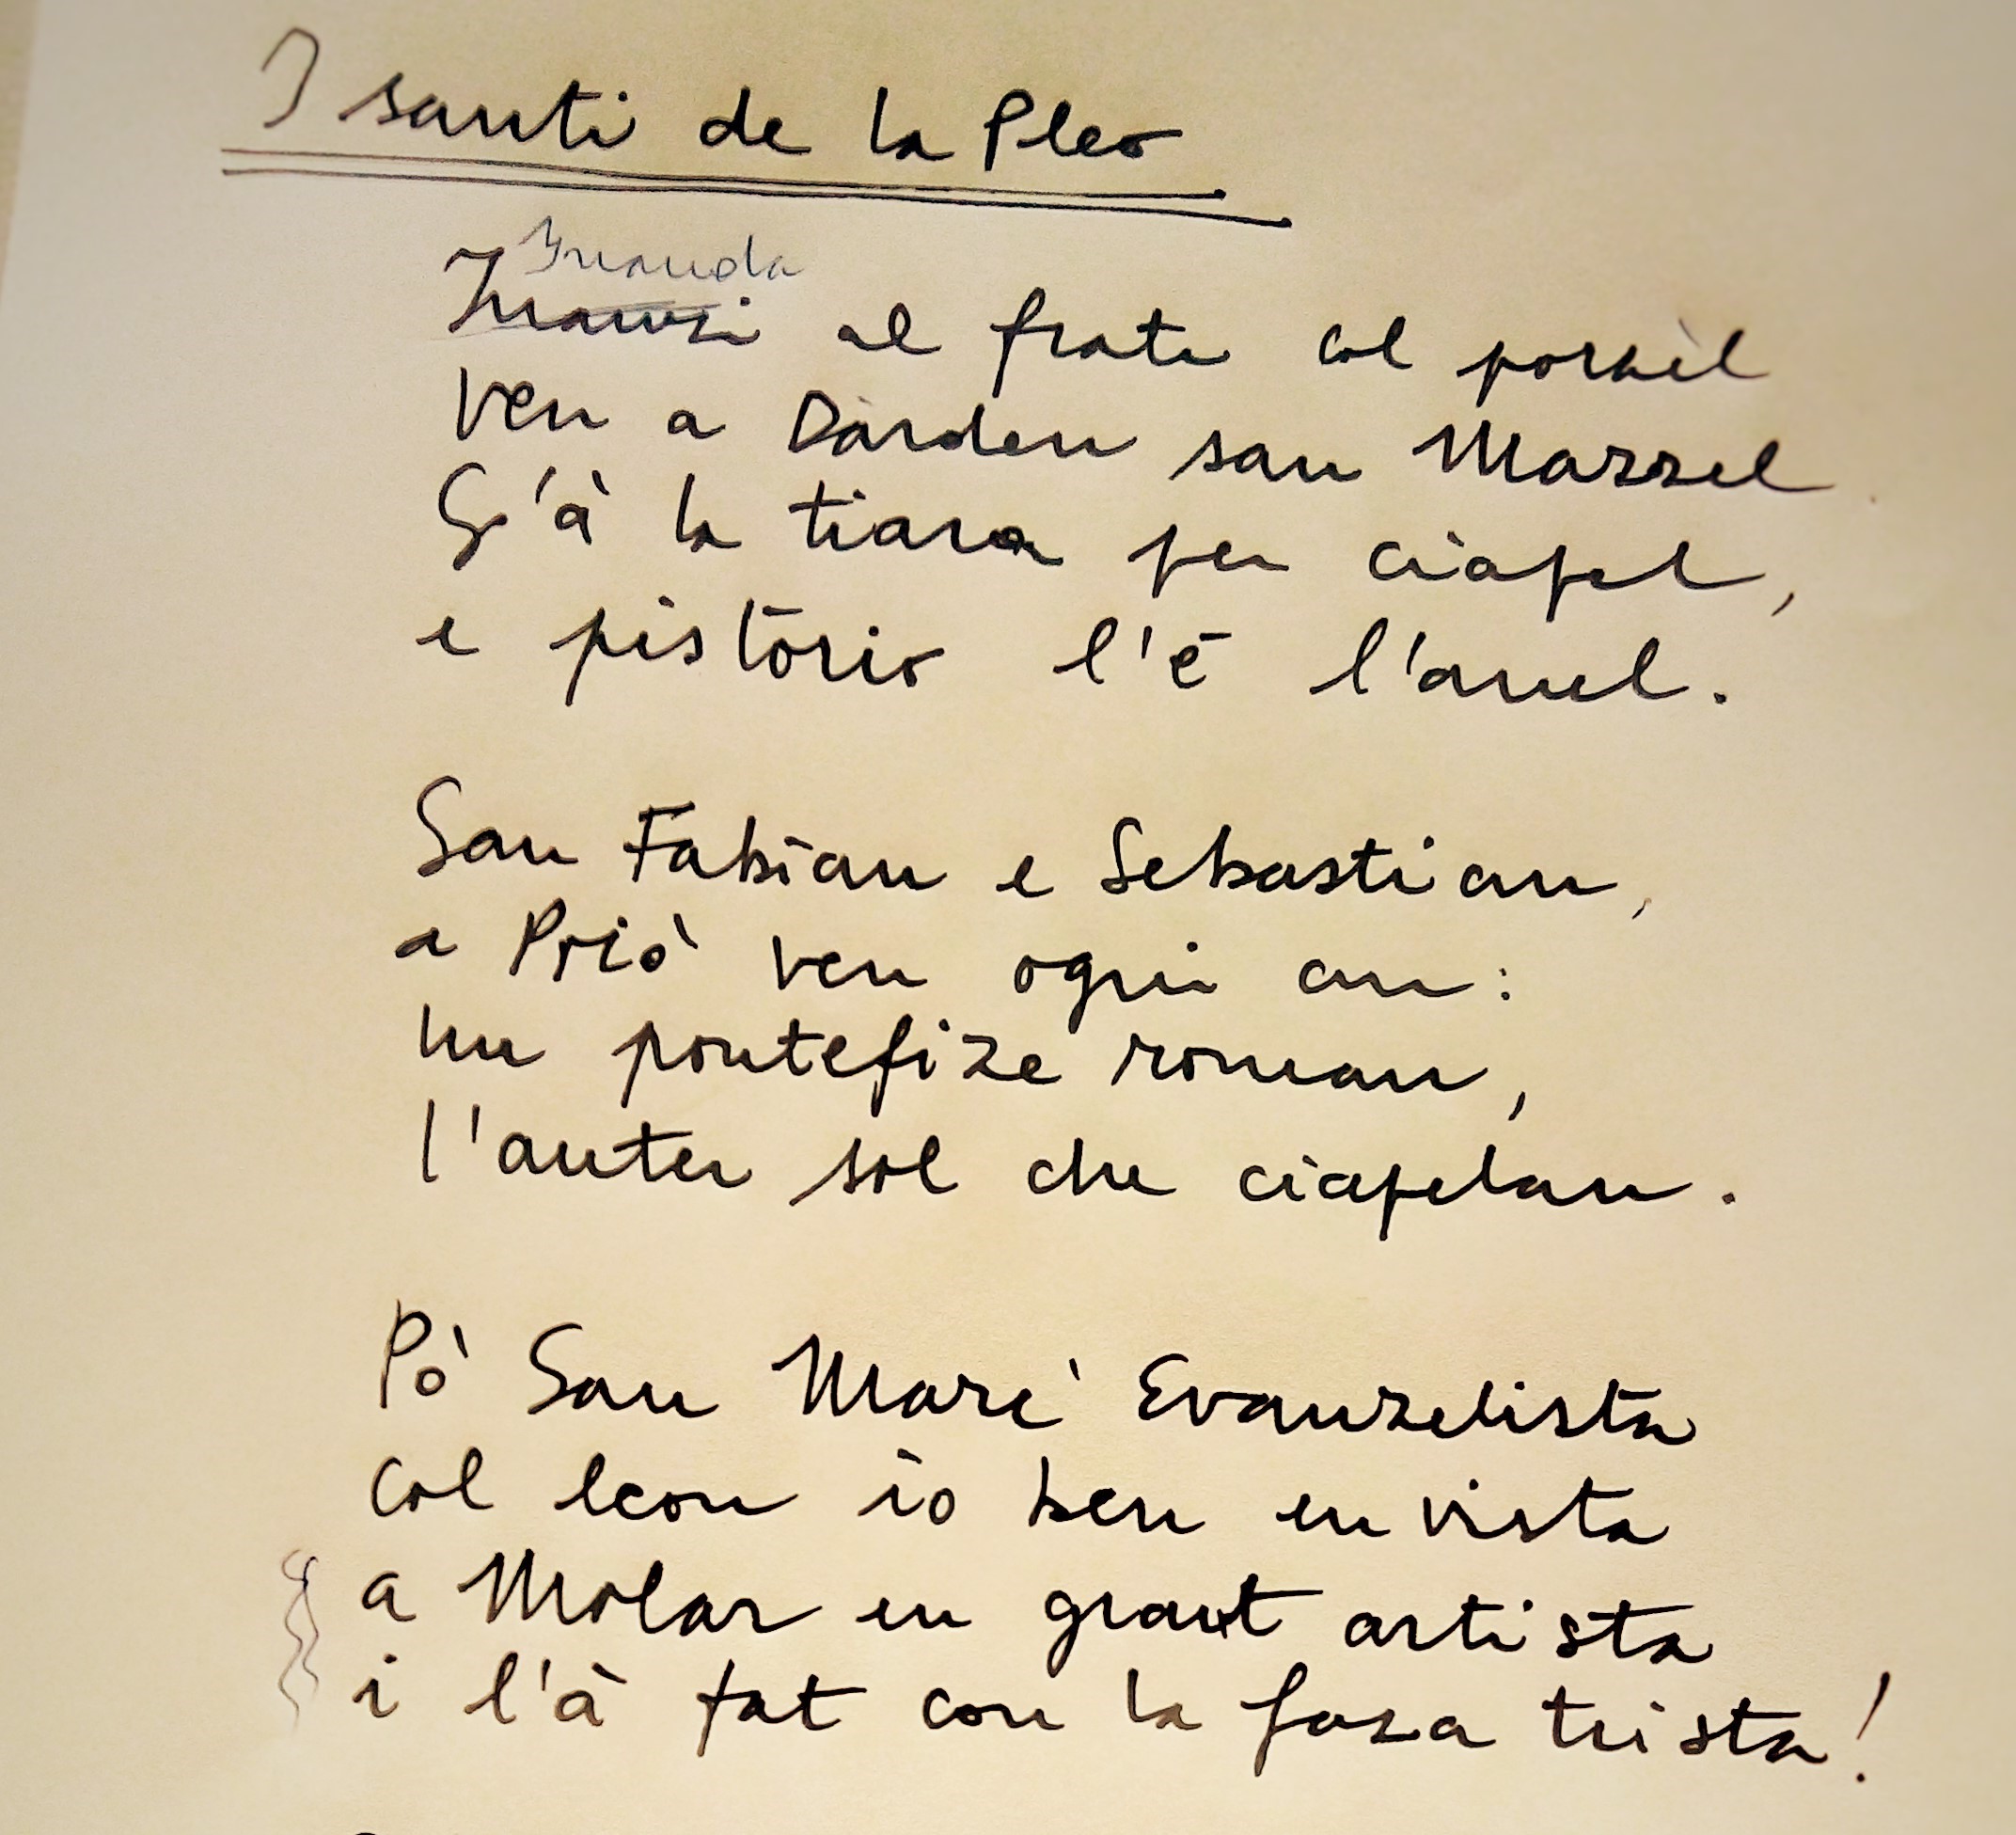 I santi de la Pleo
Inanda
Inanzi al frate col porzèl
ven a Dàrden san Marzel
G'à la tiara per ciapel,
e pistòrio l'é l'anel.
San Fabian e Sebastian,
a Priò ven ogni an:
hn pontefize roman,
l'auter sol che ciapelan.
Pò San Marc' Evanzelista
col leon io ben en vista
a Molar en grant artista
i l'à fat con la faza trista!